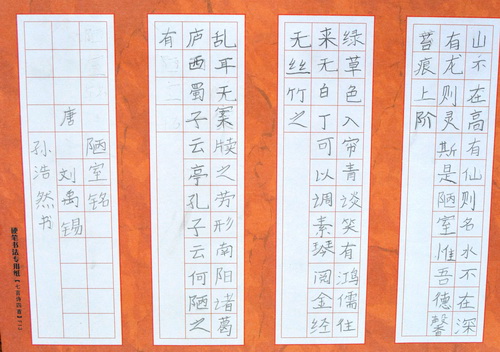 山不在高有仙则名水不在深
有龙则灵斯是陋室惟吾德馨
苔痕上阶
绿草色入帘青谈笑有鸿儒往
来无白丁可以调素琴阅金经
无丝竹之
乱耳无案牍之劳形南阳诸葛
庐西蜀子云亭孔子云何陋之
有
陋室铭
唐 刘禹锡
孙浩然书
硬笔书法专用纸